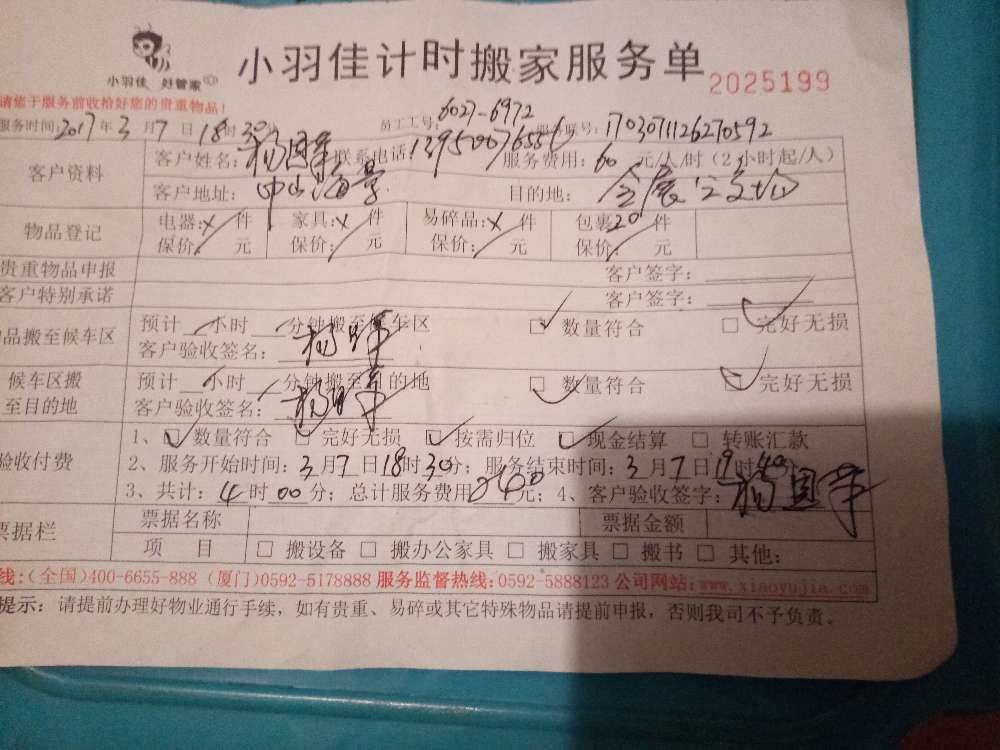 小羽佳 好管家
小羽佳计时搬家服务单 2025199
请您于服务前收拾好您的贵重物品！
服务时间:2017年3月7日18时30分 员工工号:6027-6972 服务联号:1703071126270592
客户资料 客户姓名: 联系电话: 服务费用:60元/人/时(2小时起/人)
客户地址:中山海景 目的地:
物品登记 电器:×件 家具:×件 易碎品:×件 包裹20件
保价: 元 保价: 元 保价: 元 保价: 元
贵重物品申报 客户签字:
客户特别承诺 客户签字:
品搬至候车区 预计 小时 分钟搬至候车区 □ 数量符合 □ 完好无损
客户验收签名:
候车区搬至目的地 预计 小时 分钟搬至目的地 □ 数量符合 □ 完好无损
客户验收签名:
验收付费 1、□ 数量符合 □ 完好无损 □ 按需归位 □ 现金结算 □ 转账汇款
2、服务开始时间:3月7日18时30分；服务结束时间:3月7日19时40
3、共计:4时00分；总计服务费用240元；4、客户验收签字:
票据栏 票据名称 票据金额
项 目 □ 搬设备 □ 搬办公家具 □ 搬家具 □ 搬书 □ 其他:
线:(全国)400-6655-888 (厦门)0592-5178888 服务监督热线:0592-5888123 公司网站:www.xiaoyujia.com
提示: 请提前办理好物业通行手续，如有贵重、易碎或其它特殊物品请提前申报，否则我司不予负责。